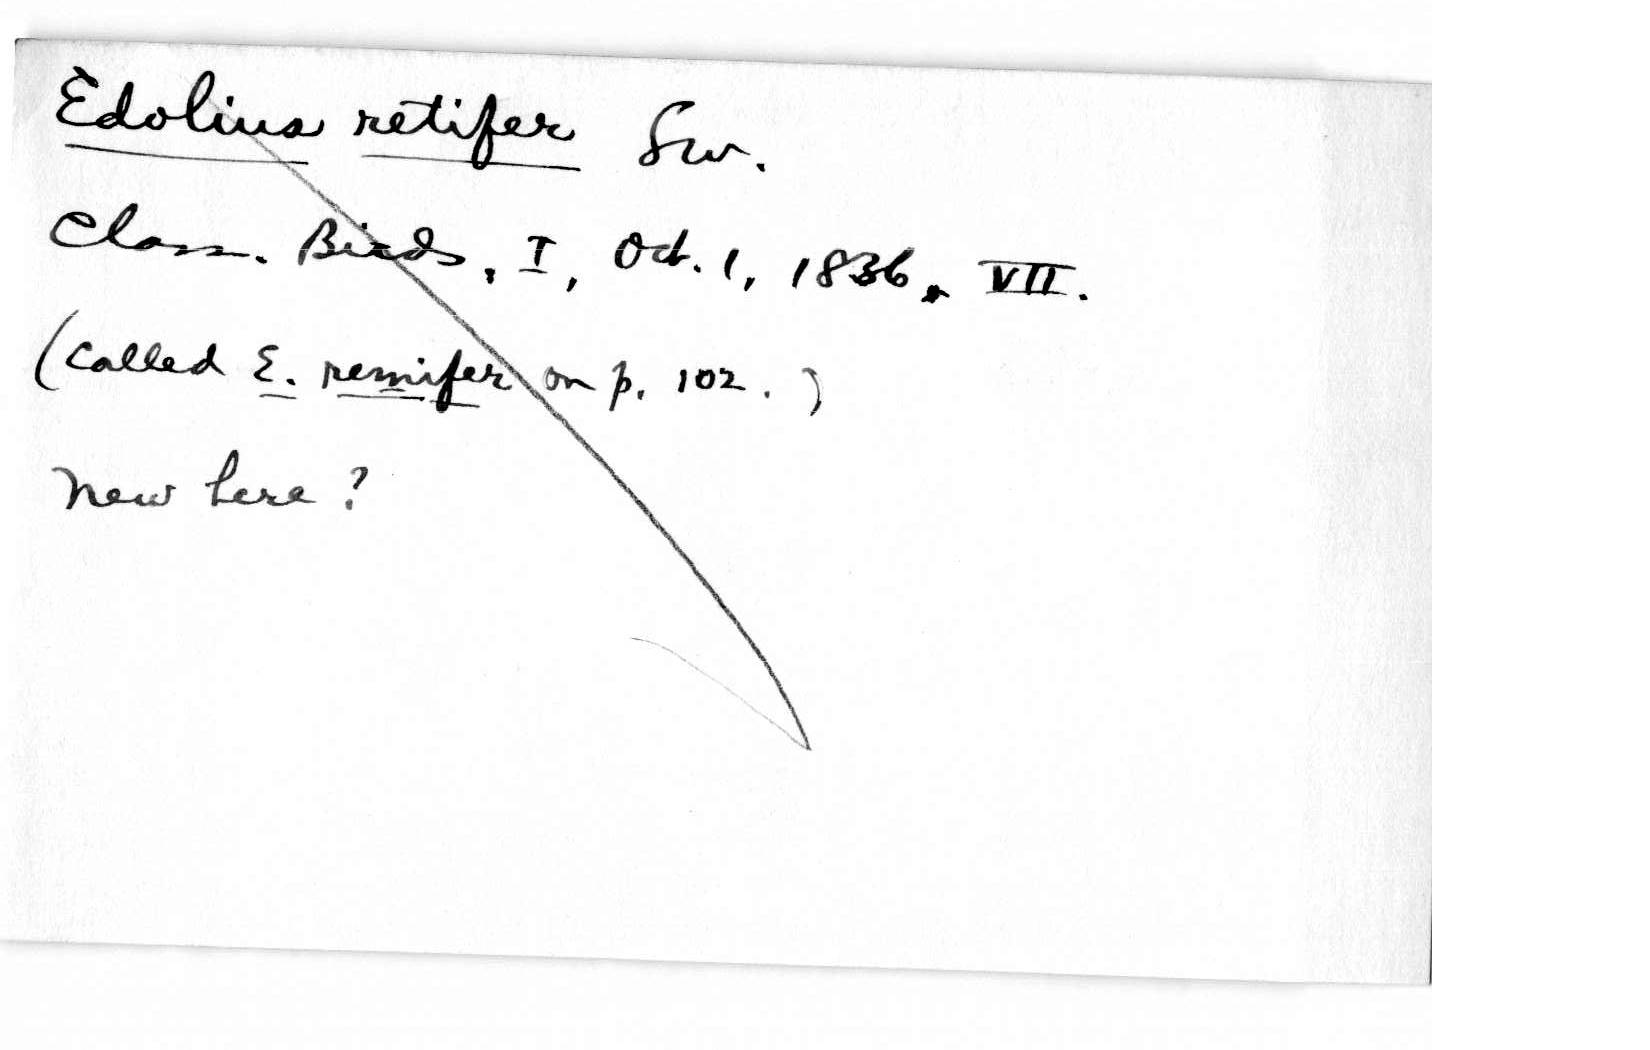 Edolius retifer Sw.
Class. Birds, I, Oct. 1, 1836, VII.
(called E. remifer on p. 102.)
New here?